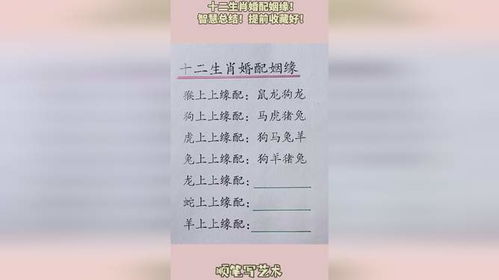 十二生肖婚配姻缘!
智慧总结!提前收藏好!
十二生肖婚配姻缘
猴上上缘配:鼠龙狗龙
狗上上缘配:马虎猪兔
虎上上缘配:狗马兔羊
兔上上缘配:狗羊猪兔
龙上上缘配:
蛇上上缘配:
羊上上缘配:
顺笔写艺术